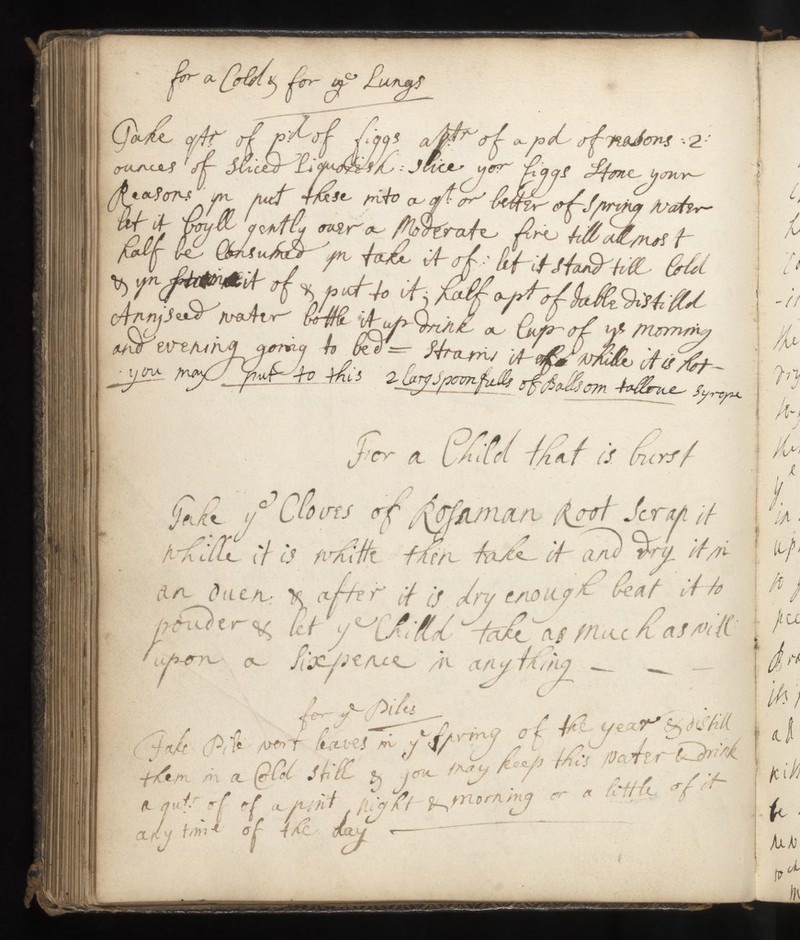 for a Cold & for ye Lungs
Take qtr of pd of figgs a qtr of a pd of reasons : 2 :
ounces of Sliced Liquorish : slice yor figgs Stone your
Reasons yn put these into a qt or better of Spring water
let it boyll gently ouer a Moderate fire till allmost
half be Consumed yn take it of : let it stand till Cold
& yn it of & put to it ; half a pt of dable distilld
Annyseed water bottle it up drink a Cup of ys morning
and evening going to bed = Strain it while it is hot -
you may put to this 2 larg spoonfulls of Ballsom talloue Syrope
For a Child that is burst
Take ye Cloves of Rosaman Root Scrap it
whille it is whitte then take it and dry it in
an ouen & after it is dry enough beat it to
pouder & let ye Chilld take as much as will
upon a Sixpence in any thing — — —
for ye Piles
Take Pile wort leaves in ye Spring of the year & distill
them in a Cold Still & you may keep this water & drink
a qutr of of a pint night & morning or a little of it
any time of the day —